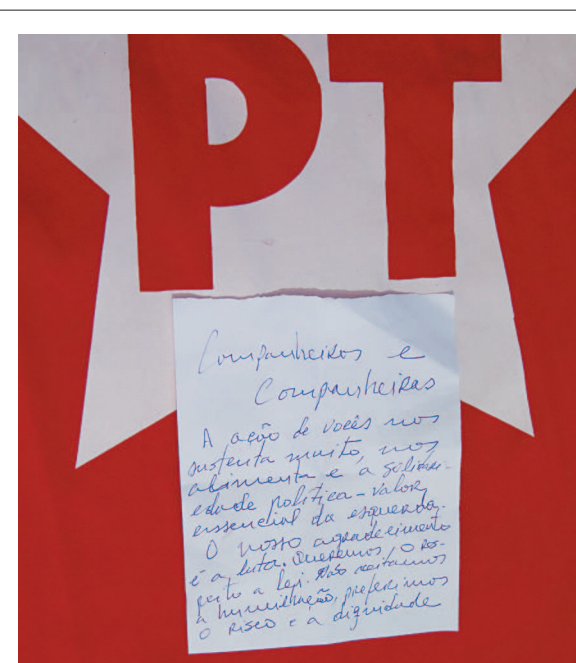 PT
Companheiros e
Companheiras
A ação de vocês nos
sustenta muito, nos
alimenta e a solidari-
edade política - valor
essencial da esquerda.
O nosso agradecimento
é a luta. Queremos, O Res-
peito a lei. Não aceitamos
a humilhação, preferimos
O Risco e a dignidade